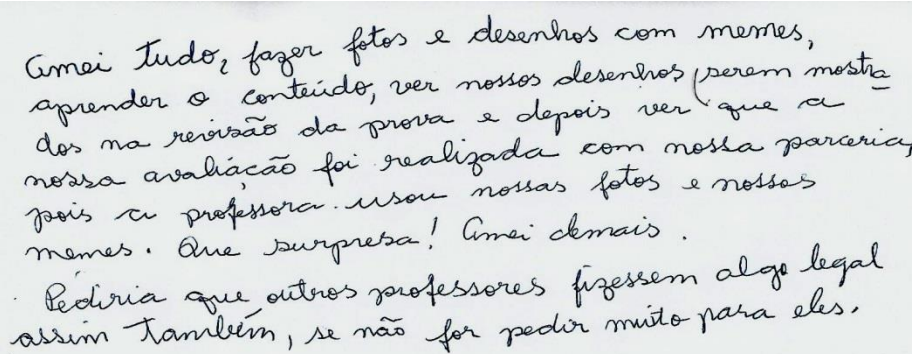 Amei tudo, fazer fotos e desenhos com memes,
aprender o conteúdo, ver nossos desenhos serem mostra
dos na revisão da prova e depois ver que a
nossa avaliação foi realizada com nossa parceria,
pois a professora usou nossas fotos e nossos
memes. Que surpresa! Amei demais.
Pediria que outros professores fizessem algo legal
assim também, se não for pedir muito para eles.